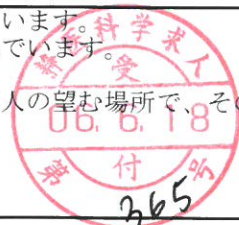 います。
でいます。
人の望む場所で、その
科学求人
受
06.6.18
付
第 号
365